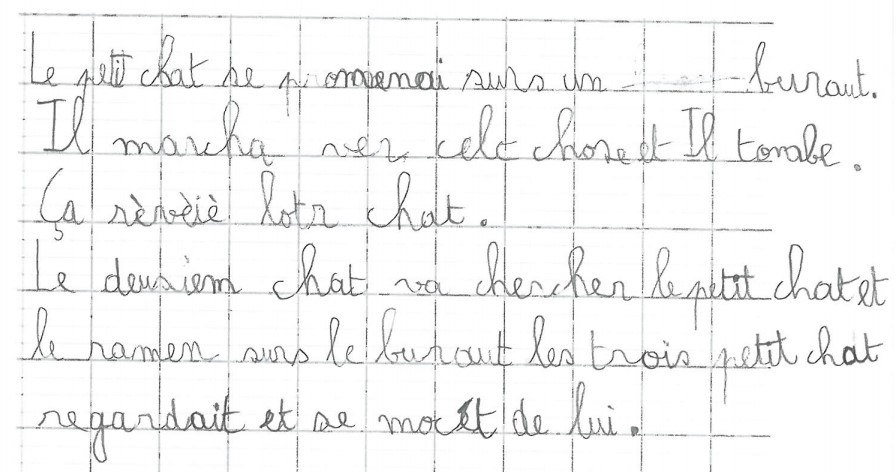 Le petit chat se promenai surs un buraut.
Il marcha ver celt chose et Il tombe.
Ça rèvèiè lotr chat.
Le deusiem chat va chercher le petit chat et
le ramen surs le buraut les trois petit chat
regardait et se moct de lui.